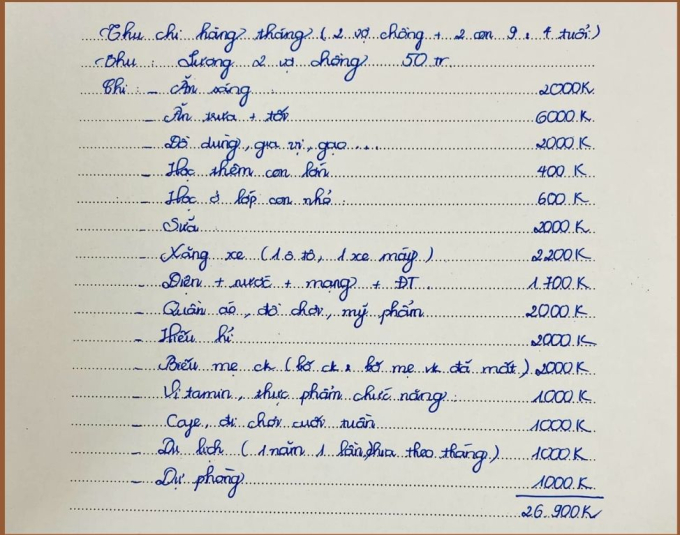 Thu chi hàng tháng (2 vợ chồng + 2 con 9, 4 tuổi)
Thu : Lương 2 vợ chồng 50 tr
Chi : - Ăn sáng : 2000K
- Ăn trưa + tối 6000 K
- Đồ dùng, gia vị, gạo ... 2000 K
- Học thêm con lớn 400 K
- Học ở lớp con nhỏ : 600 K
- Sữa 2000 K
- Xăng xe (1 ô tô, 1 xe máy) 2.200K
- Điện + nước + mạng + ĐT. 1.700K
- Quần áo, đồ chơi, mỹ phẩm 2000 K
- Hiếu hỉ 2000 K
- Biếu mẹ ck (bố ck, bố mẹ vk đã mất) 2000 K
- Vitamin, thực phẩm chức năng : 1000 K
- Cafe, đi chơi cuối tuần 1000 K
- Du lịch (1 năm 1 lần, chia theo tháng) 1000 K
- Dự phòng 1000 K
26.900K